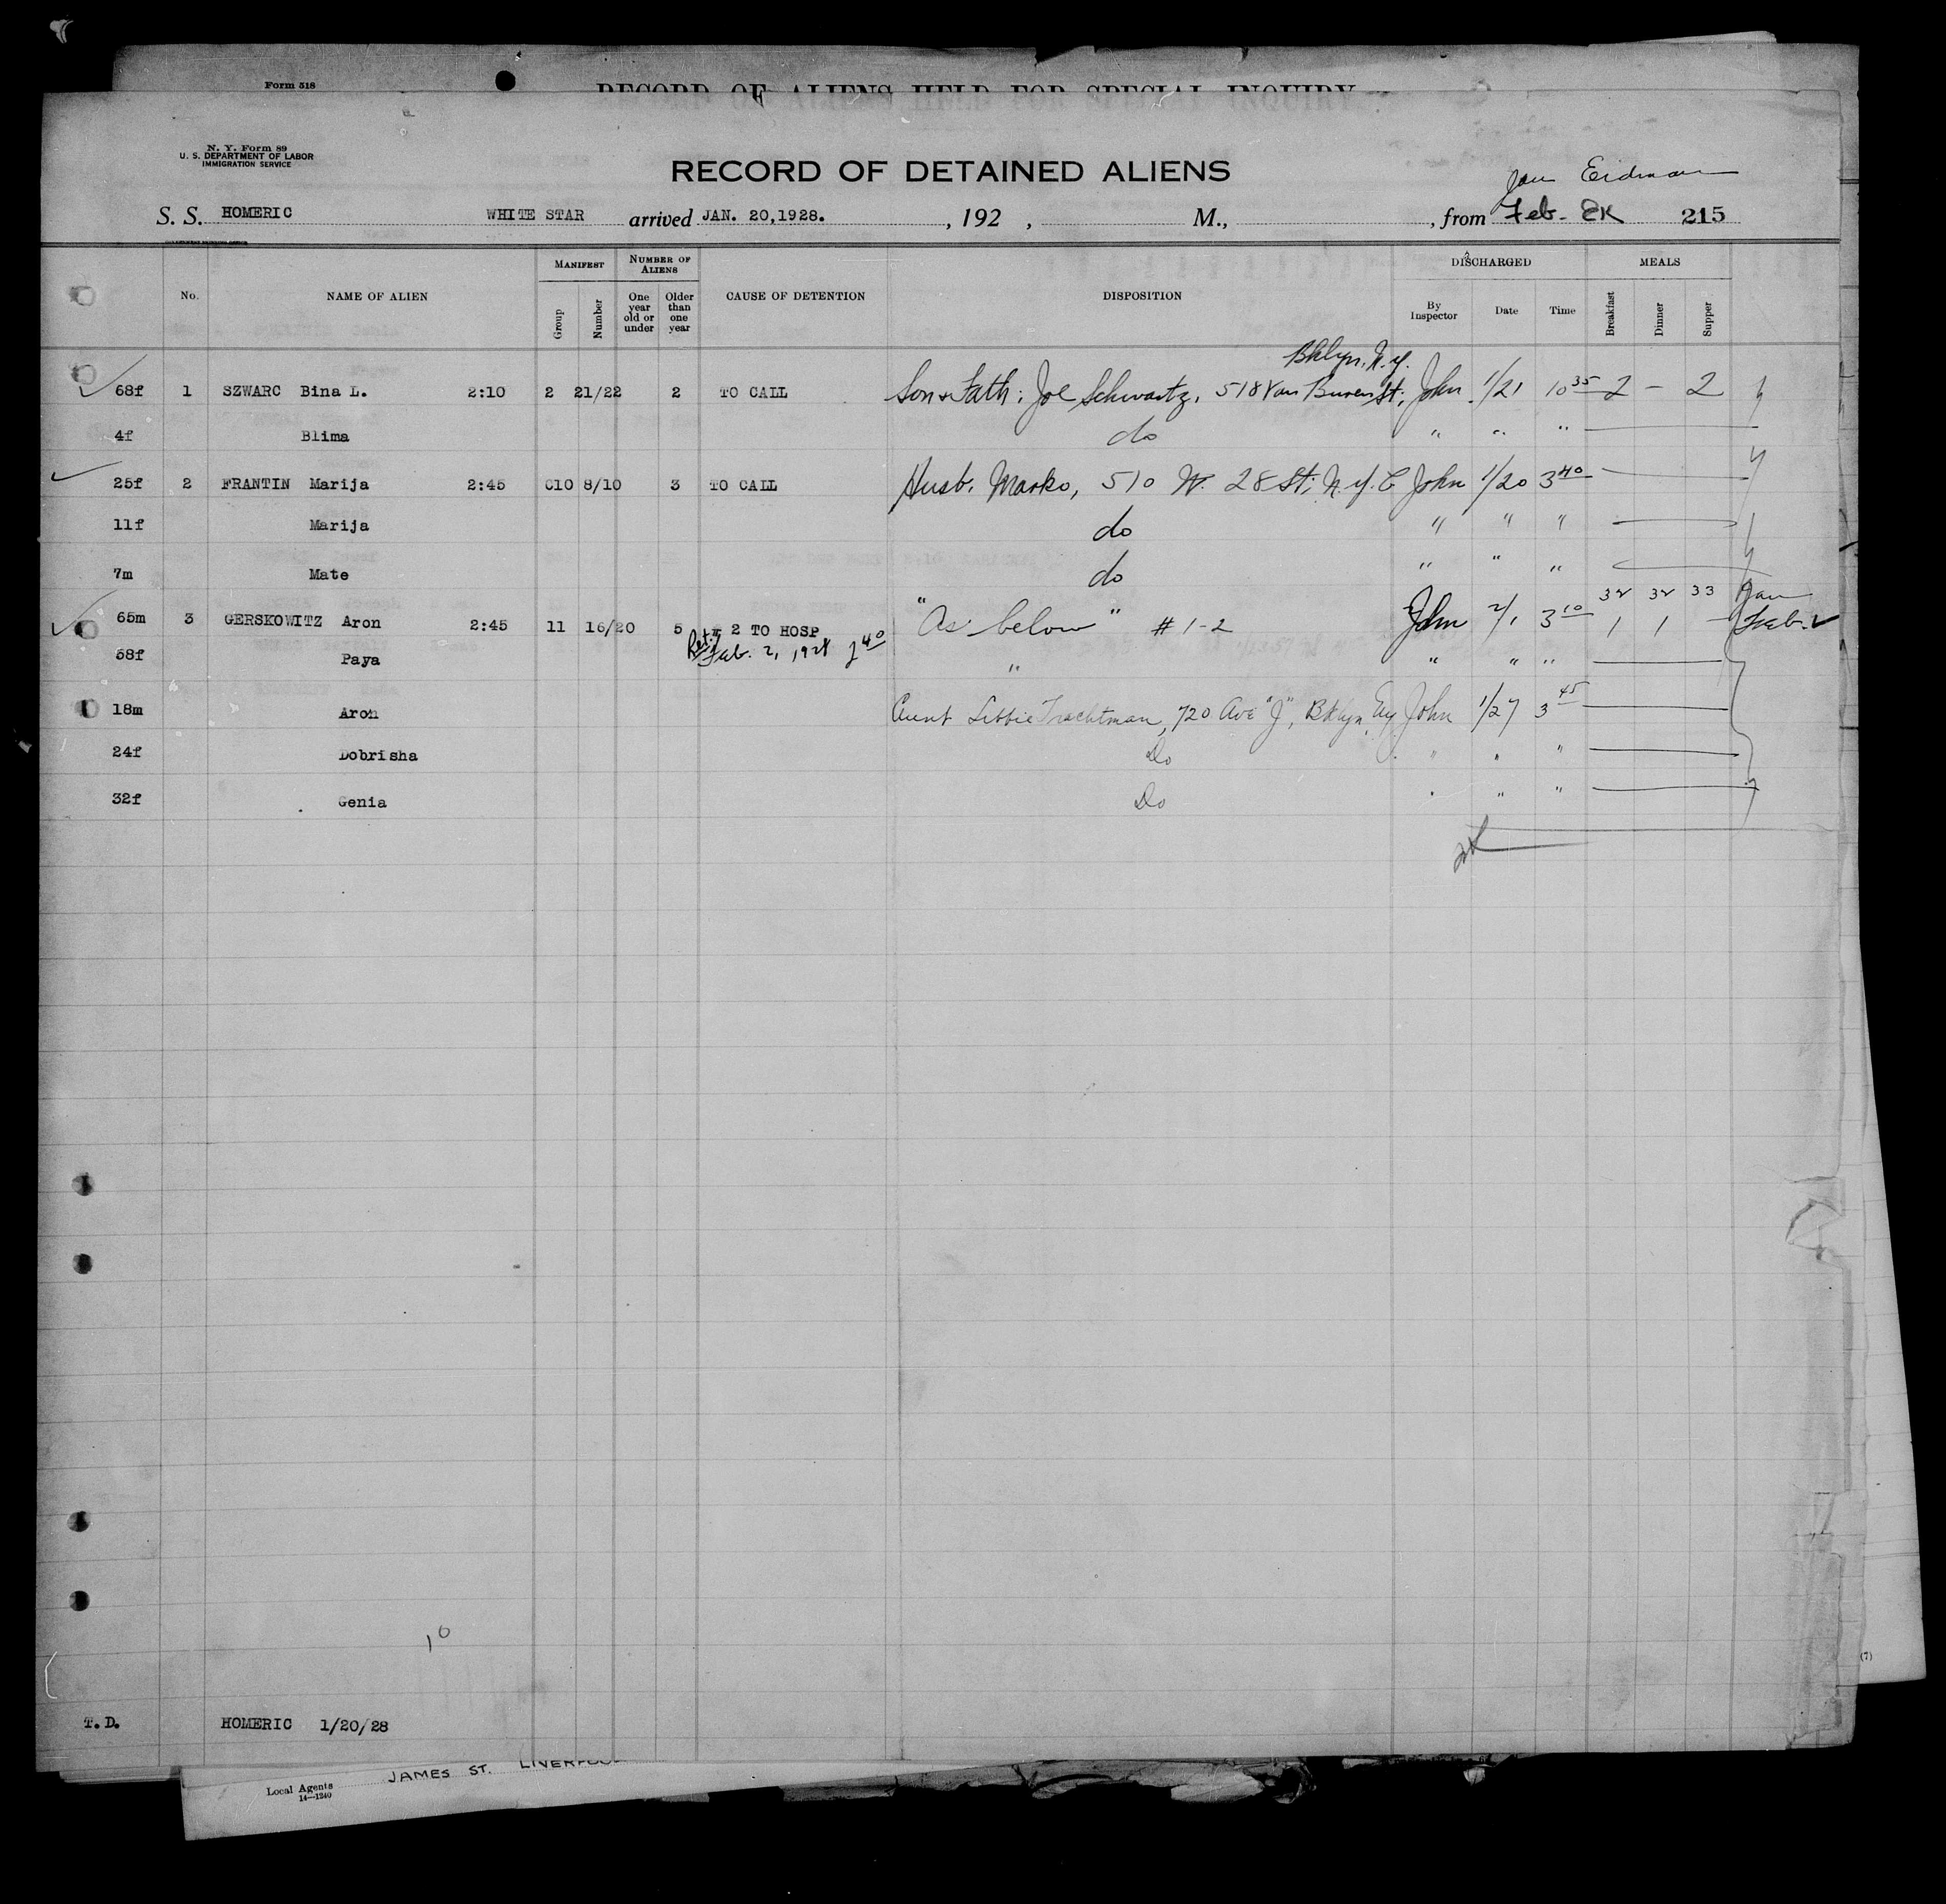 Form 518
RECORD OF ALIENS HELD FOR SPECIAL INQUIRY
N. Y. Form 89
U. S. DEPARTMENT OF LABOR
IMMIGRATION SERVICE
RECORD OF DETAINED ALIENS
Jan Eidman
S. S. HOMERIC WHITE STAR arrived JAN. 20,1928. , 192 , M., , from Feb- EK 215
No. NAME OF ALIEN MANIFEST Group Number NUMBER OF ALIENS One year old or under Older than one year CAUSE OF DETENTION DISPOSITION DISCHARGED By Inspector Date Time MEALS Breakfast Dinner Supper
Bklyn, N.Y.
68f 1 SZWARC Bina L. 2:10 2 21/22 2 TO CALL Son & Fath: Joe Schwartz, 518 Van Buren St; John 1/21 10 35 2 - 2
4f Blima do " " "
25f 2 FRANTIN Marija 2:45 C10 8/10 3 TO CALL Husb. Marko, 510 W. 28 St; N.Y.C John 1/20 3 40
11f Marija do " " "
7m Mate do " " "
32 32 33 Jan
65m 3 GERSKOWITZ Aron 2:45 11 16/20 5 # 2 TO HOSP "As below" # 1-2 John 2/1 3 10 1 1 - Feb.
58f Paya Feb. 2, 1928 2 40 " " " "
18m Aron Aunt Libbie Trachtman, 720 Ave "J", Bklyn, John 1/27 3 45
24f Dobrisha Do " " "
32f Genia Do " " "
10
T.D. HOMERIC 1/20/28
(7)
JAMES ST. LIVERPOOL
Local Agents
14—1240